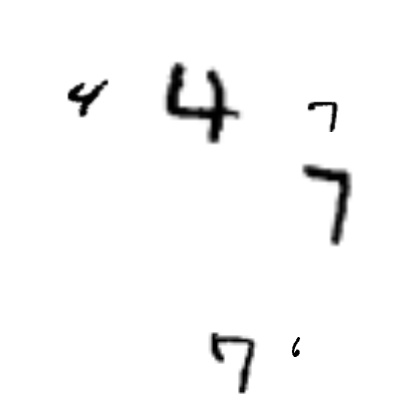 4 4 7
7
7 6